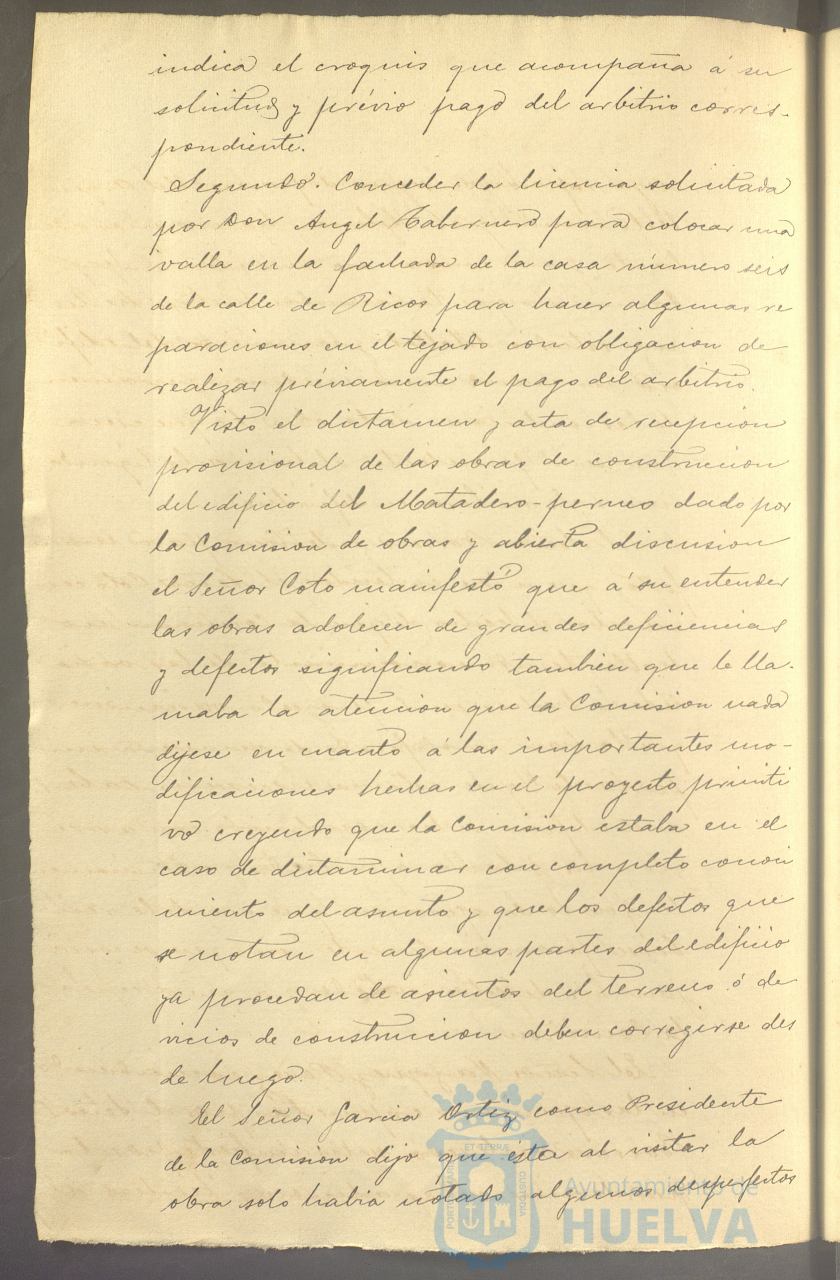 indica el croquis que acompaña á su
solicitud y prévio pago del arbitrio corres-
pondiente.
Segundo. Conceder la licencia solicitada
por Don Angel Tabernero para colocar una
valla en la fachada de la casa número seis
de la calle de Ricos para hacer algunas re
paraciones en el tejado con obligacion de
realizar préviamente el pago del arbitrio.
Visto el dictámen y acta de recepcion
provisional de las obras de construccion
del edificio del Matadero-perneo dado por
la Comision de obras y abierta discusion
el Señor Coto manifestó que á su entender
las obras adolecen de grandes deficiencias
y defectos significando tambien que le lla-
maba la atencion que la Comision nada
dijese en cuanto á las importantes mo-
dificaciones hechas en el proyecto primiti
vo creyendo que la Comision estaba en el
caso de dictaminar con completo conoci
miento del asunto y que los defectos que
se notan en algunas partes del edificio
ya procedan de asientos del terreno ó de
vicios de construccion deben corregirse des
de luego.
El Señor Garcia Ortiz como Presidente
de la Comision dijo que ésta al visitar la
obra solo habia notado algunos desperfectos
PORTUS MARIS ET TERRÆ CUSTODIA
Ayuntamiento de
HUELVA